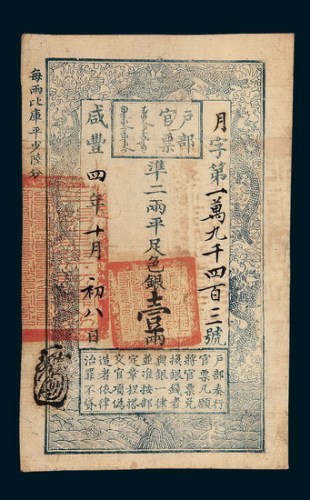 月字第一萬九千四百三號
戶部
官票
準二兩平足色銀壹兩
咸豐四年十月初八日
每兩比庫平少陸分
戶部奏行
官票凡願
將官票兌
換銀錢者
與銀一律
並准按部
定章程搭
交官項偽
造者依律
治罪不貸